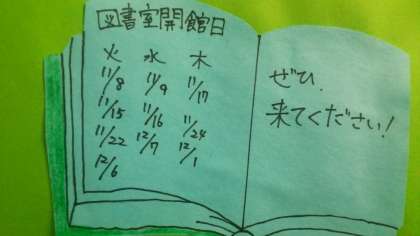 図書室開館日
火 水 木
11/8 11/9 11/17
11/15 11/16 11/24
11/22 12/7 12/1
12/6
ぜひ
来てください!